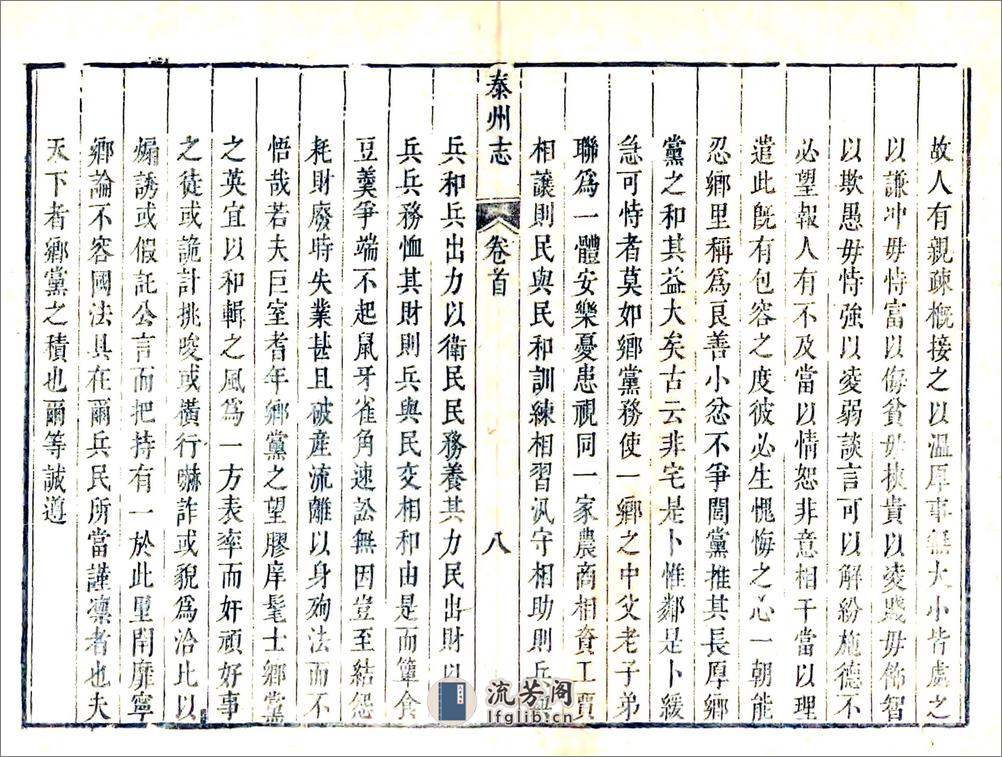 故人有親疎概接之以温厚事無大小皆處之
以謙冲毋恃富以侮貧毋挾貴以凌賤毋飾智
以欺愚毋恃強以凌弱談言可以解紛施德不
必望報人有不及當以情恕非意相干當以理
遣此旣有包容之度彼必生愧悔之心一朝能
忍鄉里稱爲良善小忿不爭閭黨推其長厚鄉
黨之和其益大矣古云非宅是卜惟鄰是卜緩
急可恃者莫如鄉黨務使一鄉之中父老子弟
聯爲一體安樂憂患視同一家農商相資工賈
相讓則民與民和訓練相習汛守相助則兵與
泰州志
卷首
八
兵和兵出力以衛民民務養其力民出財以
兵兵務恤其財則兵與民交相和由是而簞食
豆羹爭端不起鼠牙雀角速訟無因豈至結怨
耗財廢時失業甚且破産流離以身殉法而不
悟哉若夫巨室耆年鄉黨之望膠庠髦士鄉黨
之英宜以和輯之風爲一方表率而奸頑好事
之徒或詭計挑唆或橫行嚇詐或貌爲洽比以
煽誘或假託公言而把持有一於此里閈靡寧
鄉論不容國法具在爾兵民所當謹凛者也夫
天下者鄉黨之積也爾等誠遵
流芳阁
lfglib.cn